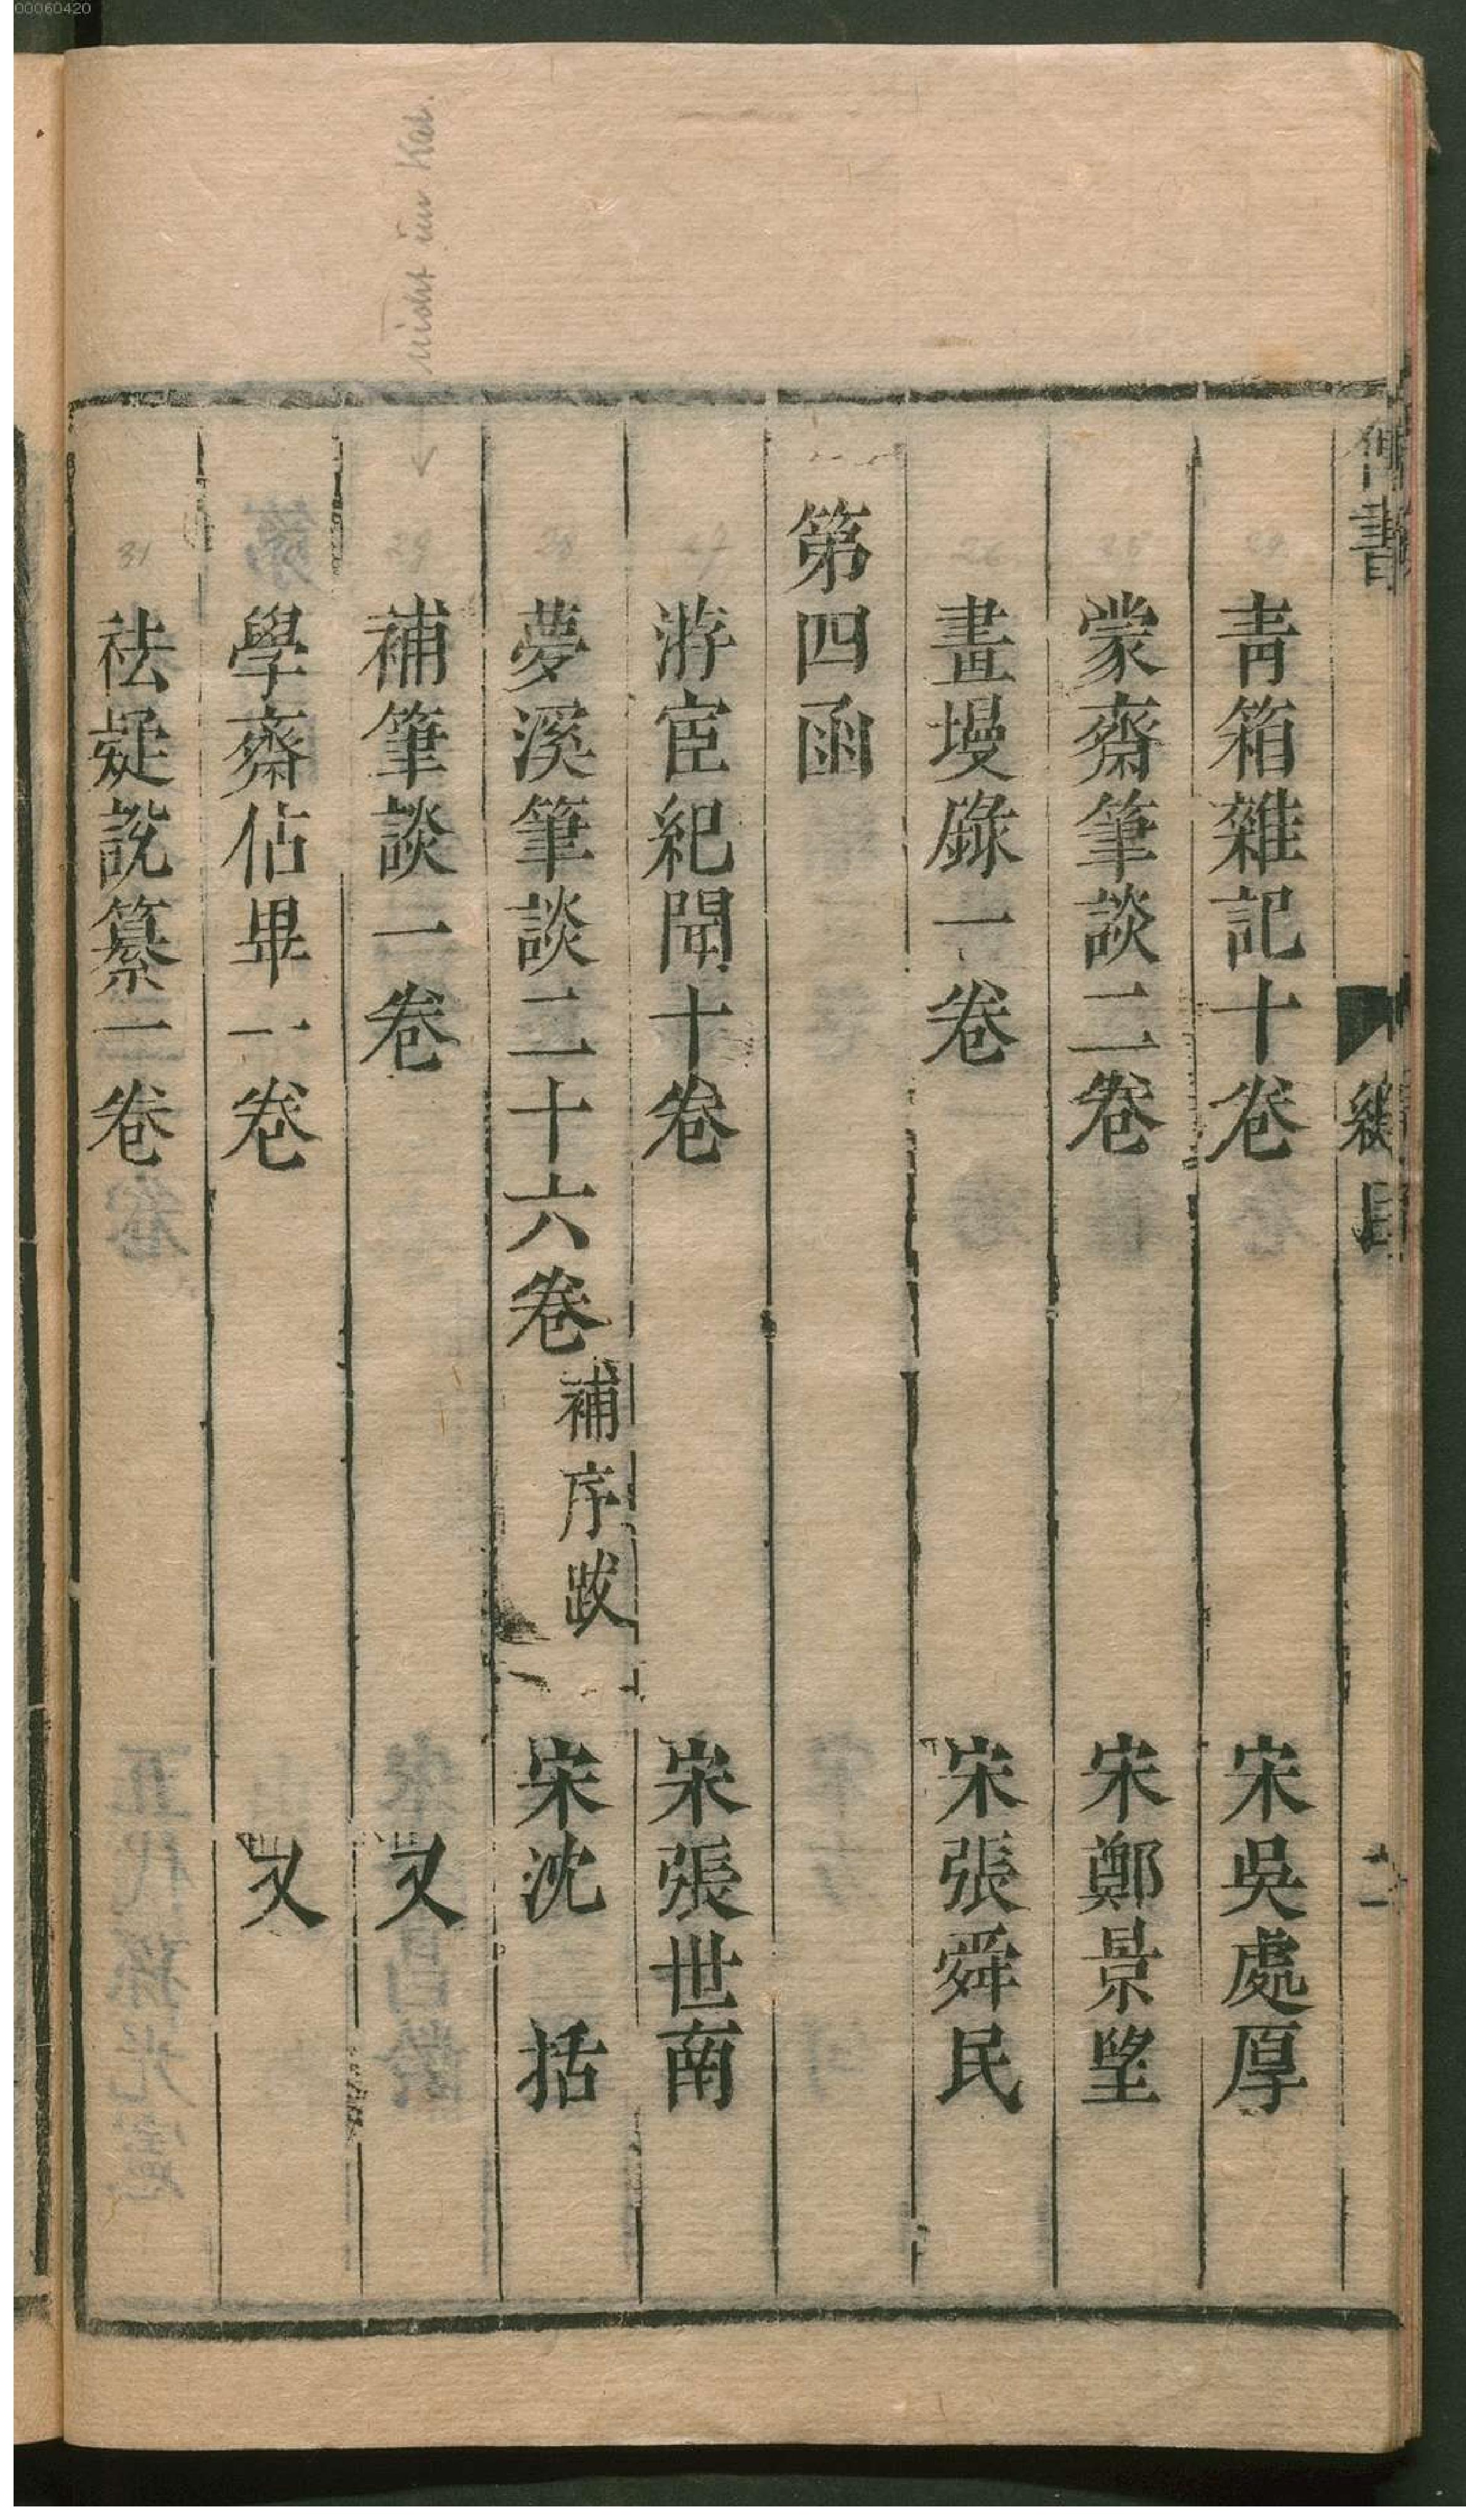 00060420
nicht im Kat.
青箱雜記十卷 宋吳處厚
蒙齋筆談二卷 宋鄭景望
畫墁錄一卷 宋張舜民
第四函
游宦紀聞十卷 宋張世南
夢溪筆談二十六卷 補序跋 宋沈括
補筆談一卷 又
學齋佔畢一卷 又
祛疑說纂一卷
書
總目
二
25
26
27
28
29
31